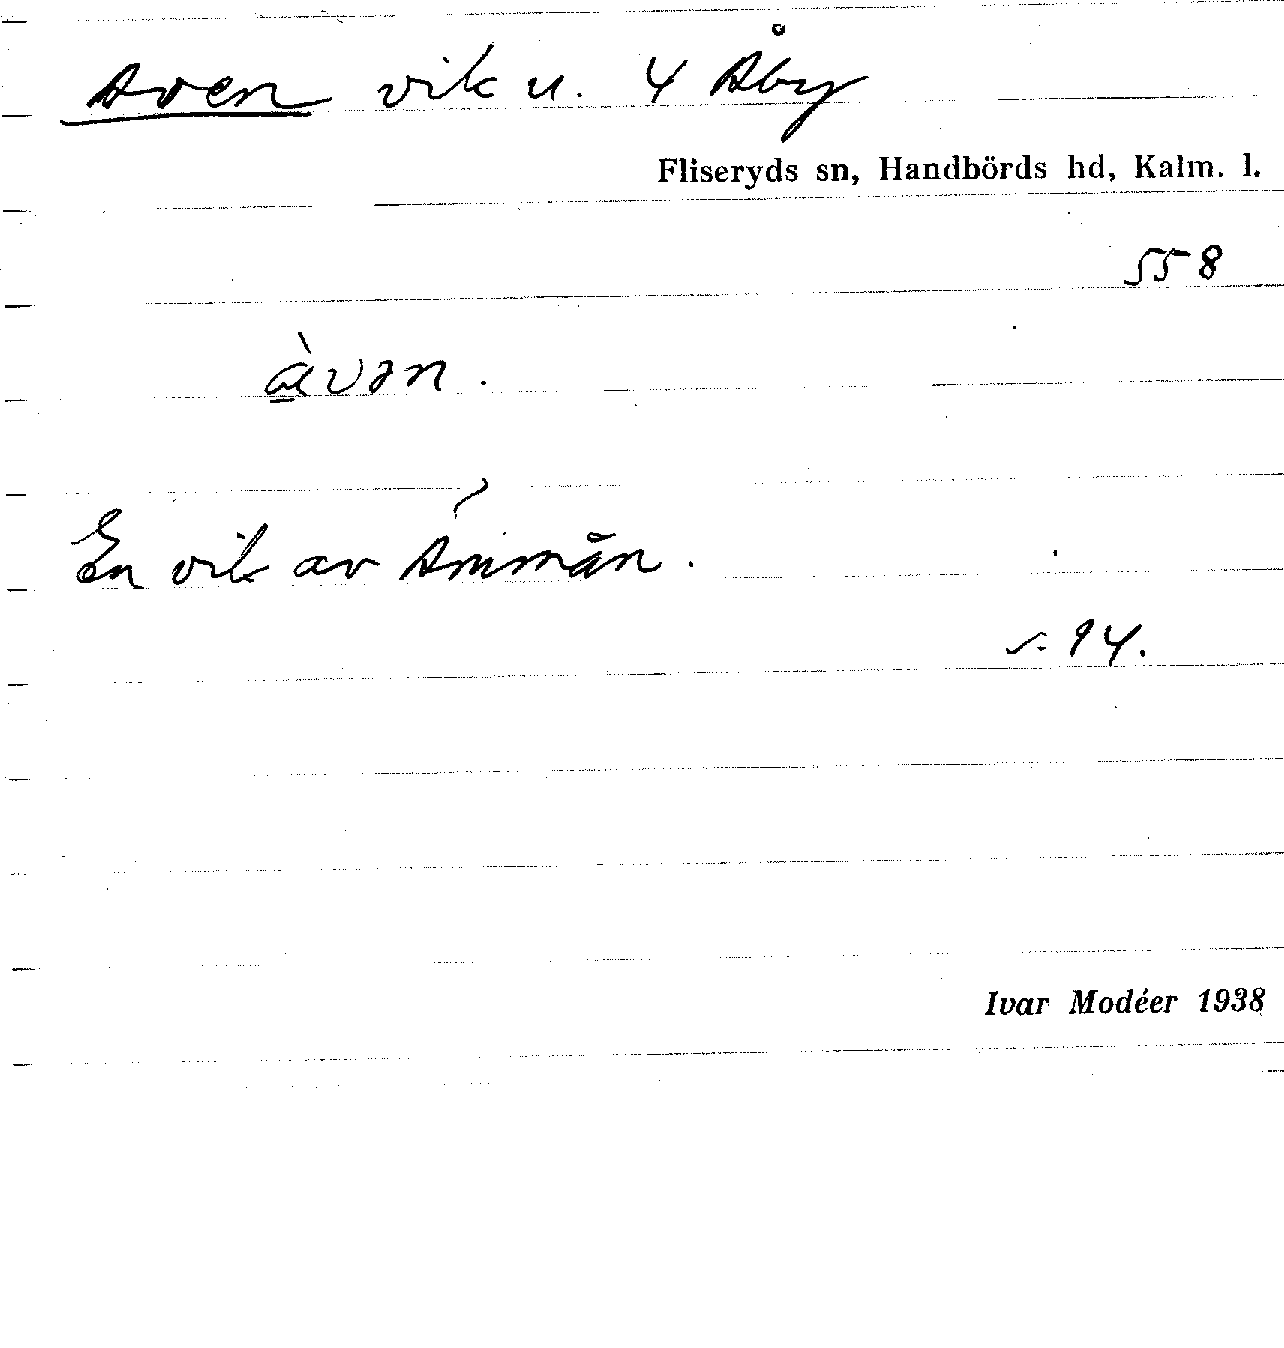 Aven vik u. 4 Åby
Fliseryds sn, Handbörds hd, Kalm. l.
558
àvən.
En vik av
s. 94.
Ivar Modéer 1938